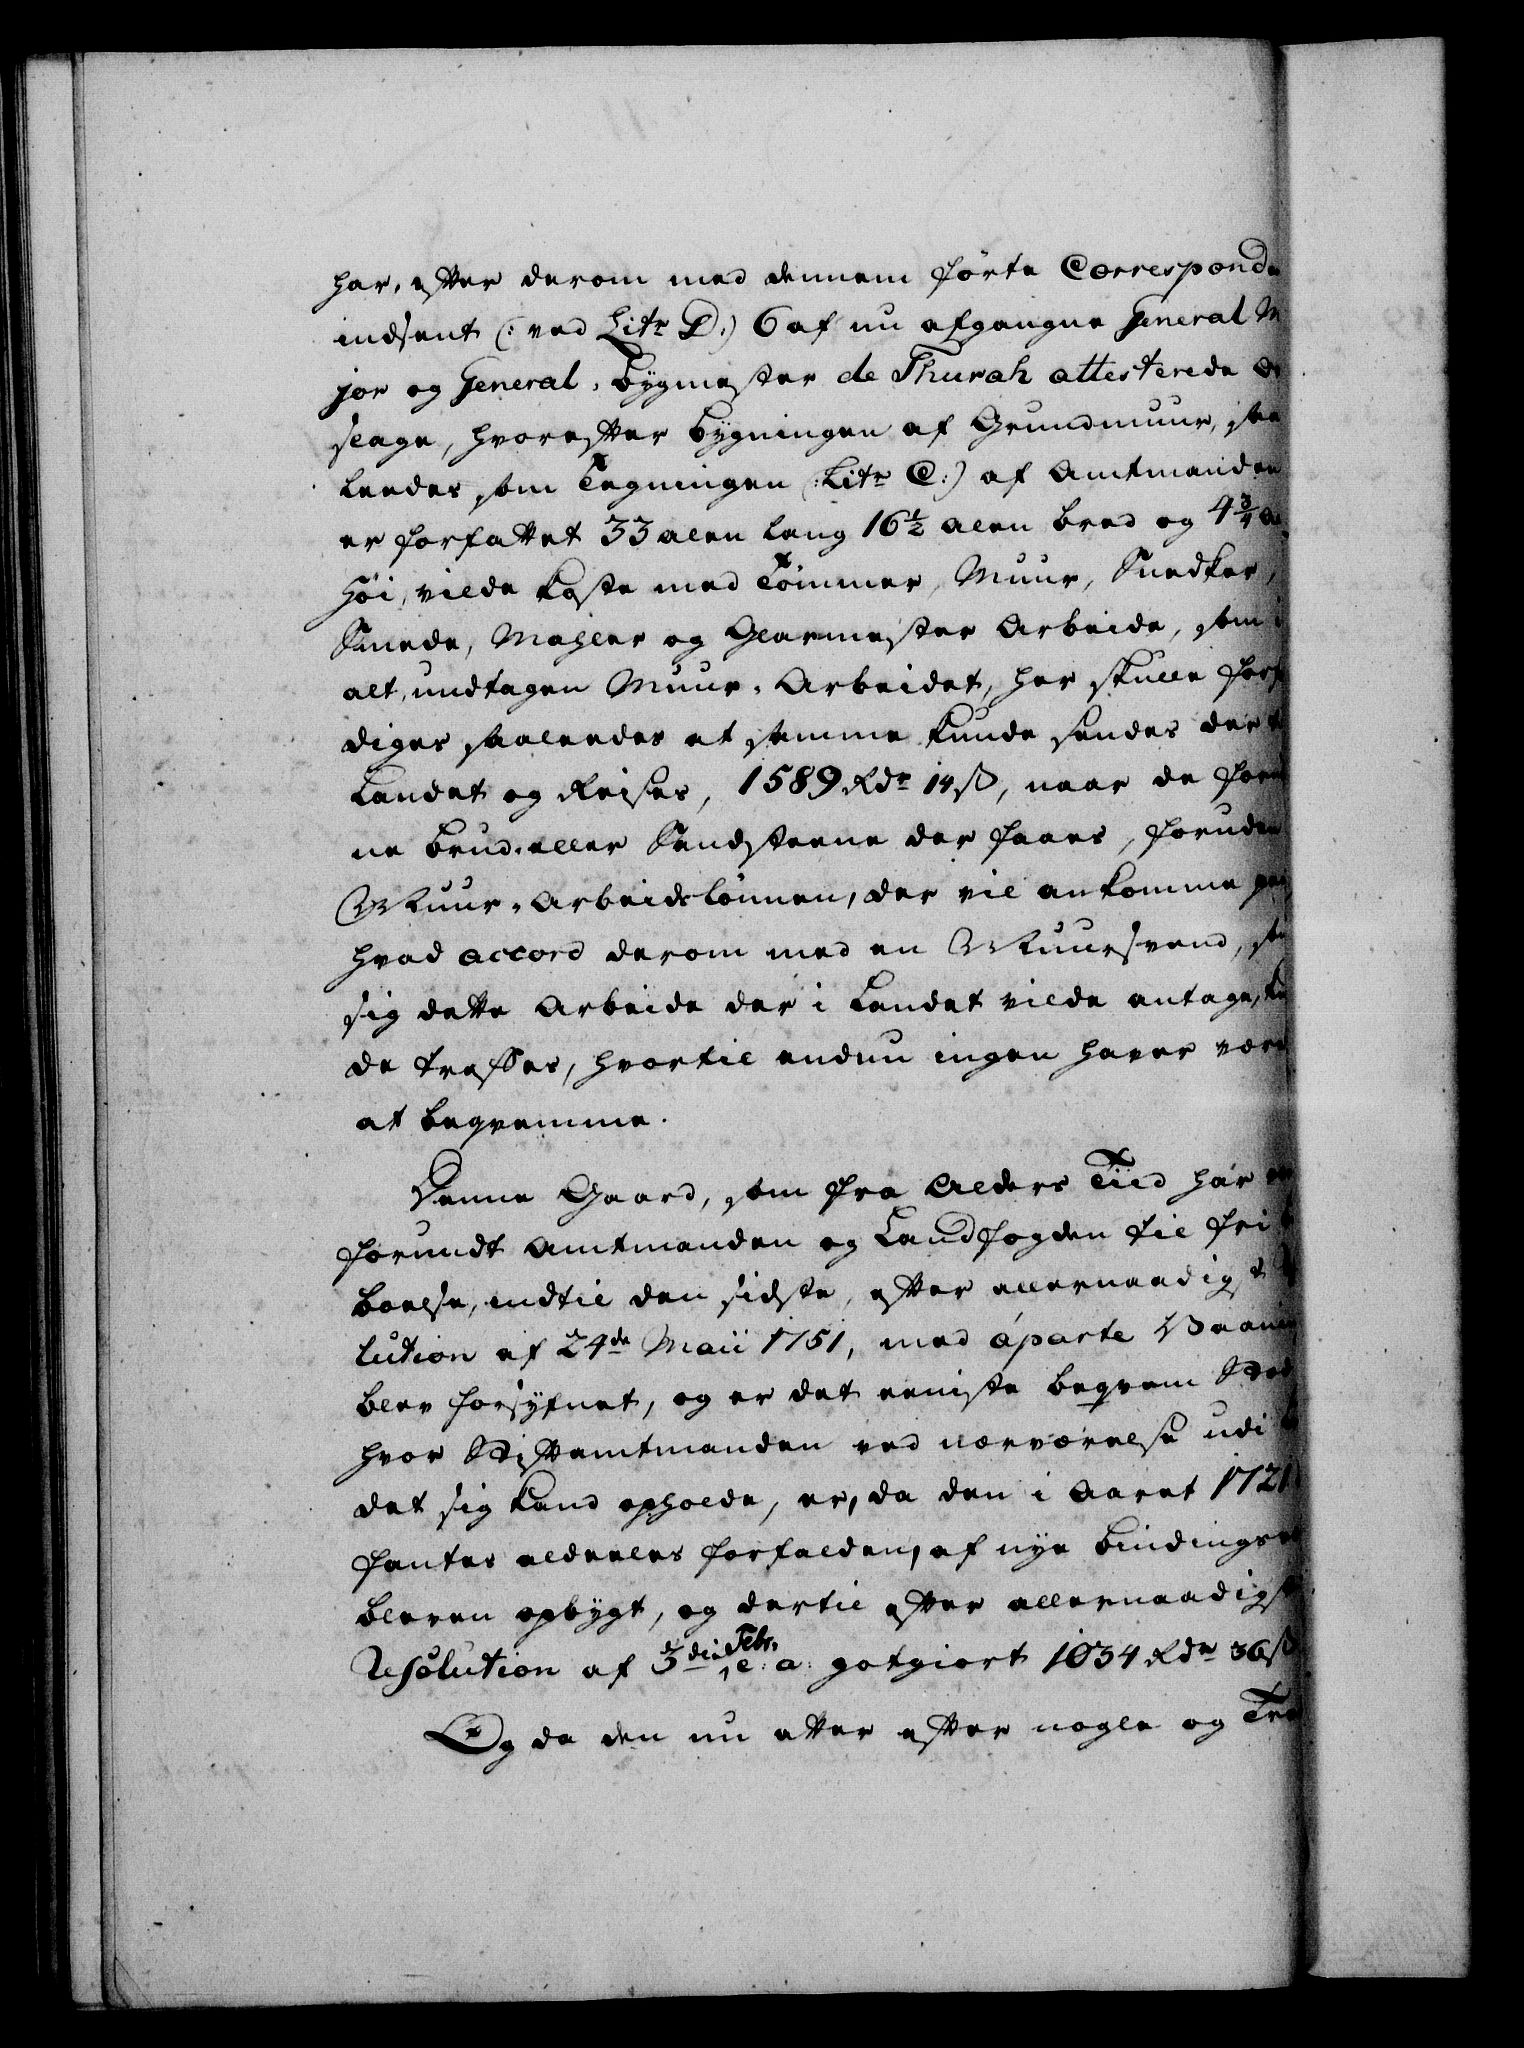 har, efter derom med dennem førte Corresponde
indsent (: ved Litr D:) 6 af nu afgangne General M
jor og General-Bygmester de Thurah attesterede O
slage, hvorefter bygningen af Grundmuur, saa
leedes som Tegningen (: Litr C:) af Amtmanden
er forfattet 33 alen lang 16½ alen bred og 4¾ al
høi, vilde koste med Tømmer, Muur, Snedker,
Smede, Mahler og Glarmester Arbeide, som i
alt, undtagen Muur-Arbeidet, her skulle forfær
diges saaledes at samme kunde sendes der t
Landet og Reises, 1589 Rdr 14 ß, naar de forn
ne brud. eller Sandsteene der faaes, foruden
Muur-Arbeidslønnen, der vil ankomme paa
hvad accord derom med en Muursvend, so
sig dette Arbeide der i Landet vilde antage, ku
de treffes, hvortil endnu ingen haver være
at beqvemme.
Denne Gaard, som fra Alders Tiid har v
forundt Amtmanden og Landfogden til fri b
boelse, indtil den sidste, efter allernaadigst
lution af 24de Maii 1751, med áparte Vaaning
blev forsyfnet, og er det eeniste beqvem Sted
hvor Stiftamtmanden ved nærværelse udi
det sig kand opholde, er, da den i Aaret 1721
fantes aldeeles forfalden, af nye bindingsv
bleven opbygt, og dertil efter allernaadigst
Resolution af 3die Febr. e: a: gotgiort 1034 Rdr 36 ß
Og da den nu atter efter nogle og Tre